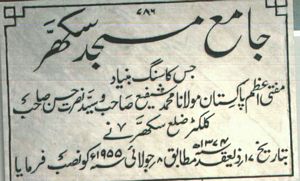 ۷۸۶
جامع مسجد سکھر
جس کا سنگ بنیاد
مفتی اعظم پاکستان مولانا محمد شفیع صاحب و سید نصرت حسن صاحب
کلکٹر ضلع سکھر نے
بتاریخ ۱۷ ذیعقد ۱۳۷۴ھ مطابق ۸ جولائی ۱۹۵۵ء کو نصب فرمایا